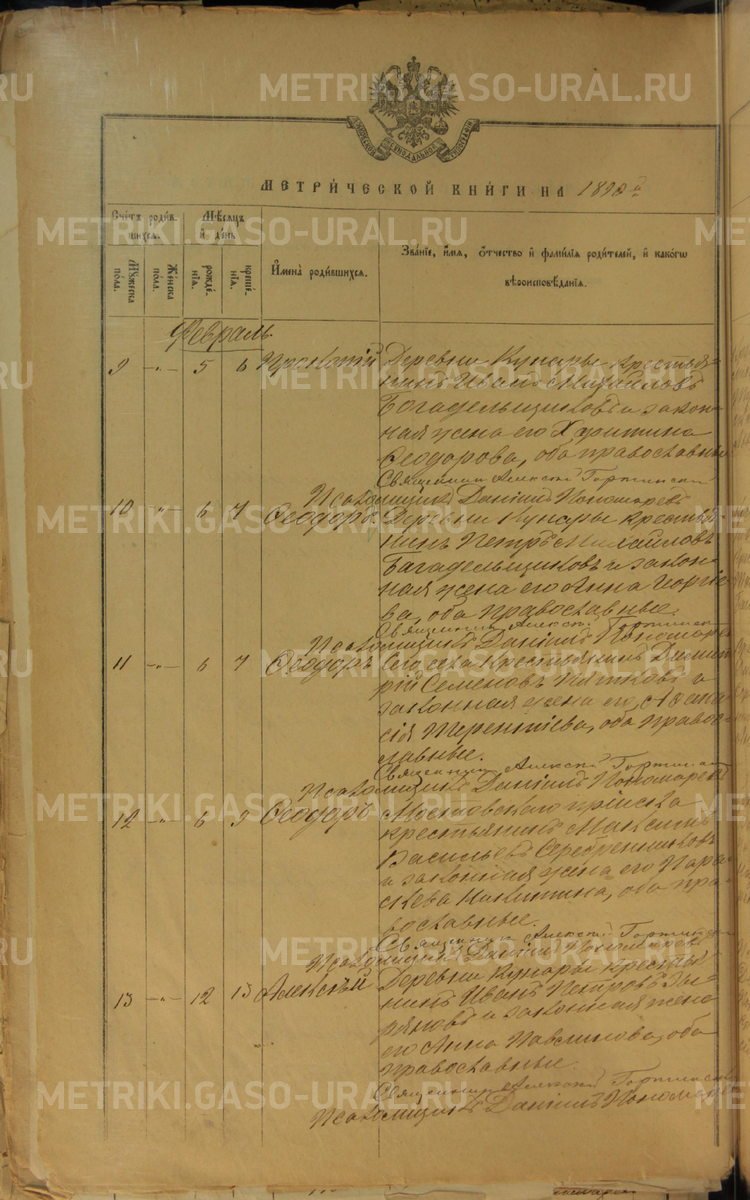 METRIKI.GASO-URAL.RU
МЕТРИ́ЧЕСКОЙ КНИ́ГИ НА
Сче́тъ роди́в-
шихся.
Мѣ́сяцъ
и҆ де́нь
Му́жеска
по́ла.
Же́нска
по́ла.
рожде́-
нїя.
креще́-
нїя.
И҆мена̀ роди́вшихся.
Зва́нїе, и҆́мя, ѻ҆́тчество и҆ фами́лїя роди́телей, и҆ како́гѡ
вѣроисповѣ́данїя.
Февраль.
9 -„- 5 6 Прокопій Деревни Кунары крестья-
нинъ Иванъ Михайловъ
Богадельщиковъ и закон-
ная жена его Харитина
Ѳеодорова, оба православные.
Священникъ Алексѣй
Псаломщикъ Даніилъ Пономаревъ
10 -„- 6 7 Ѳеодоръ Деревни Кунары крестья-
нинъ Петръ Михайловъ
Багадельщиковъ и закон-
ная жена его Анна Георгіе-
ва, оба православные.
Священникъ Алексѣй
Псаломщикъ Даніилъ Пономарев
11 -„- 6 7 Ѳеодоръ Сего села крестьянинъ Димит-
рій Семеновъ Пятковъ и
законная жена его,
Терентіева, оба право-
славные.
Священникъ Алексѣй
Псаломщикъ Даніилъ Пономарев
12 -„- 6 9 Ѳеодоръ Мостовскаго пріиска
крестьянинъ Максимъ
Васильевъ Серебренниковъ
и законная жена его Пара-
скева Никитина, оба пра-
вославные.
Священникъ Алексѣй
Псаломщикъ Даніилъ Пономарев
13 -„- 12 13 Алексѣй Деревни Кунары крестья-
нинъ Иванъ Петровъ Зы-
ряновъ и законная жена
его Анна Павлинова, оба
православные.
Священникъ Алексѣй
Псаломщикъ Даніилъ Пономарев